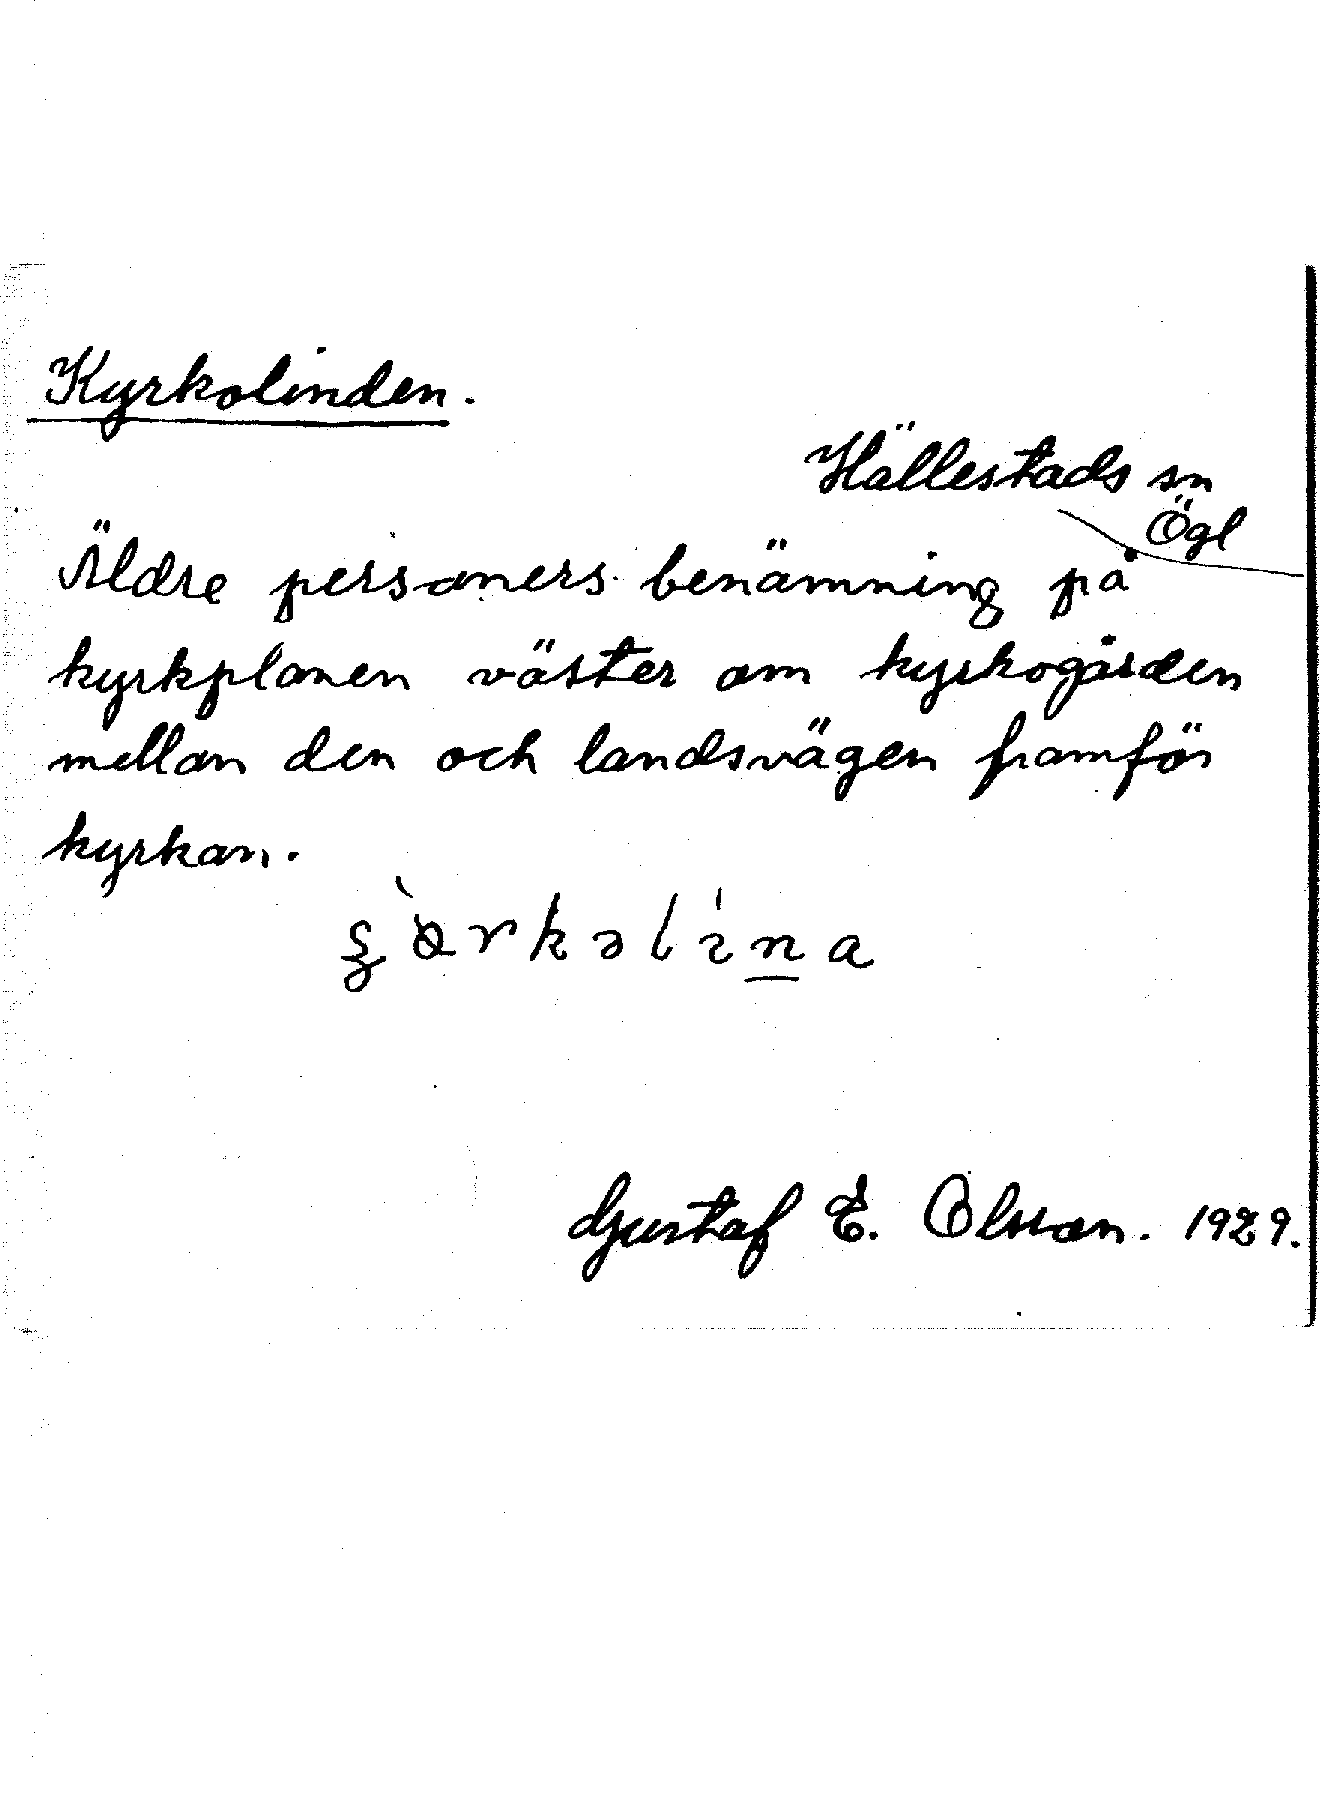 Kyrkolinden.
Hällestads sn
Ögl
Äldre personers benämning på
kyrkplanen väster om kyrkogården
mellan den och landsvägen framför
kyrkan.
Gustaf E. Olsson. 1929.